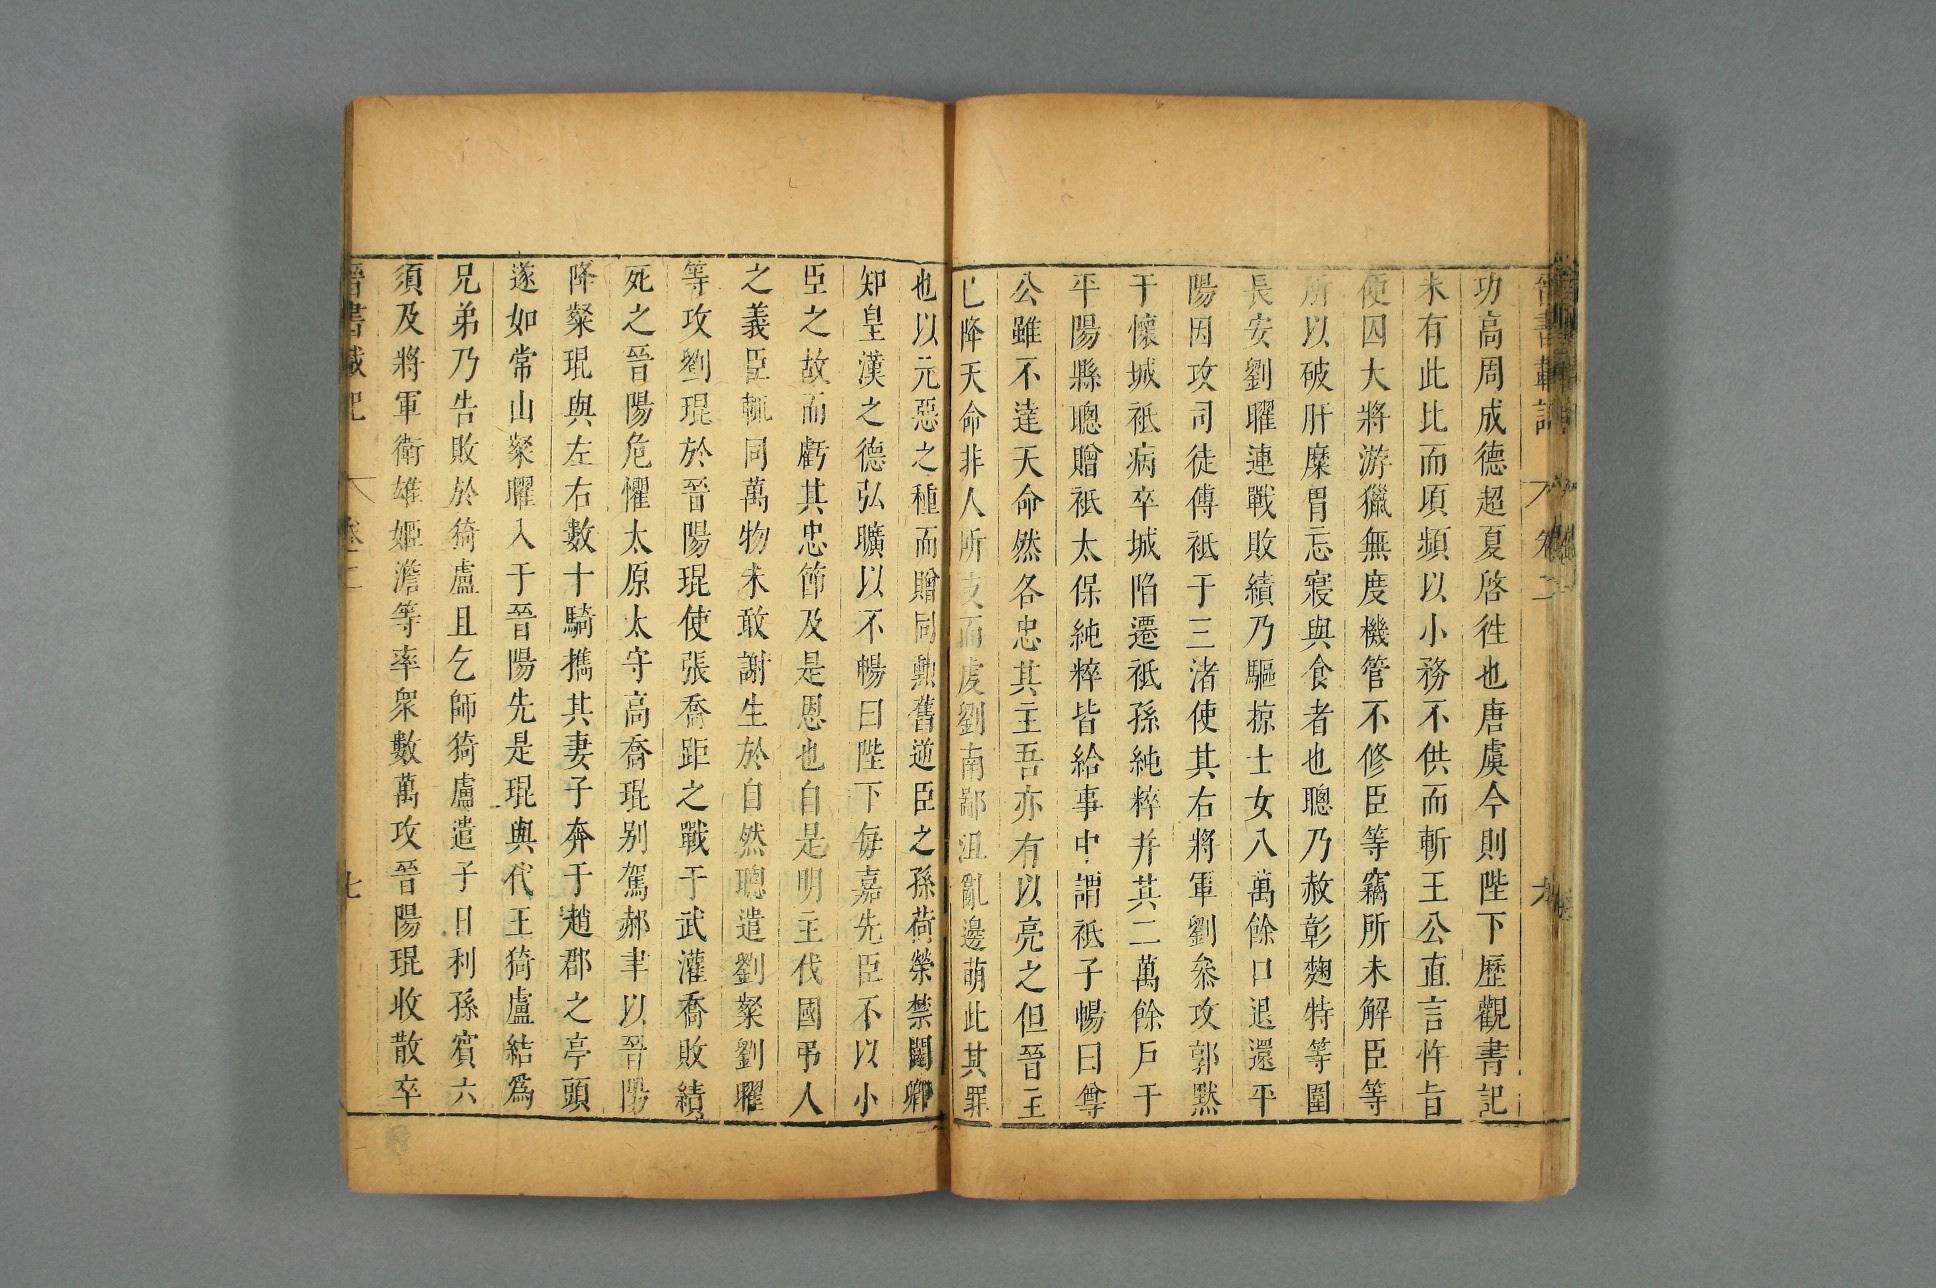 晉書載記 卷二 六
功高周成德超夏啓徃也唐虞今則陛下歷觀書記
未有此比而頃頻以小務不供而斬王公直言忤旨
便囚大將游獵無度機管不修臣等竊所未解臣等
所以破肝糜胃忘寢與食者也聰乃赦彰麹特等圍
長安劉曜連戰敗績乃驅掠士女八萬餘口退還平
陽因攻司徒傅祗于三渚使其右將軍劉叅攻郭默
于懷城祗病卒城陷遷祗孫純粹并其二萬餘戶于
平陽縣聰贈祗太保純粹皆給事中謂祗子暢曰尊
公雖不達天命然各忠其主吾亦有以亮之但晉主
已降天命非人所支而虔劉南鄙沮亂邊萌此其罪
也以元惡之種而贈同勲舊逆臣之孫荷榮禁闥卿
知皇漢之德弘曠以不暢曰陛下每嘉先臣不以小
臣之故而虧其忠節及是恩也自是明主伐國弔人
之義臣輒同萬物未敢謝生於自然聰遣劉粲劉曜
等攻劉琨於晉陽琨使張喬距之戰于武灌喬敗績
死之晉陽危懼太原太守高喬琨别駕郝聿以晉陽
降粲琨與左右數十騎携其妻子奔于趙郡之亭頭
遂如常山粲曜入于晉陽先是琨與代王猗盧結爲
兄弟乃告敗於猗盧且乞師猗盧遣子日利孫賓六
須及將軍衛雄姬澹等率衆數萬攻晉陽琨收散卒
晉書載記 卷二 七